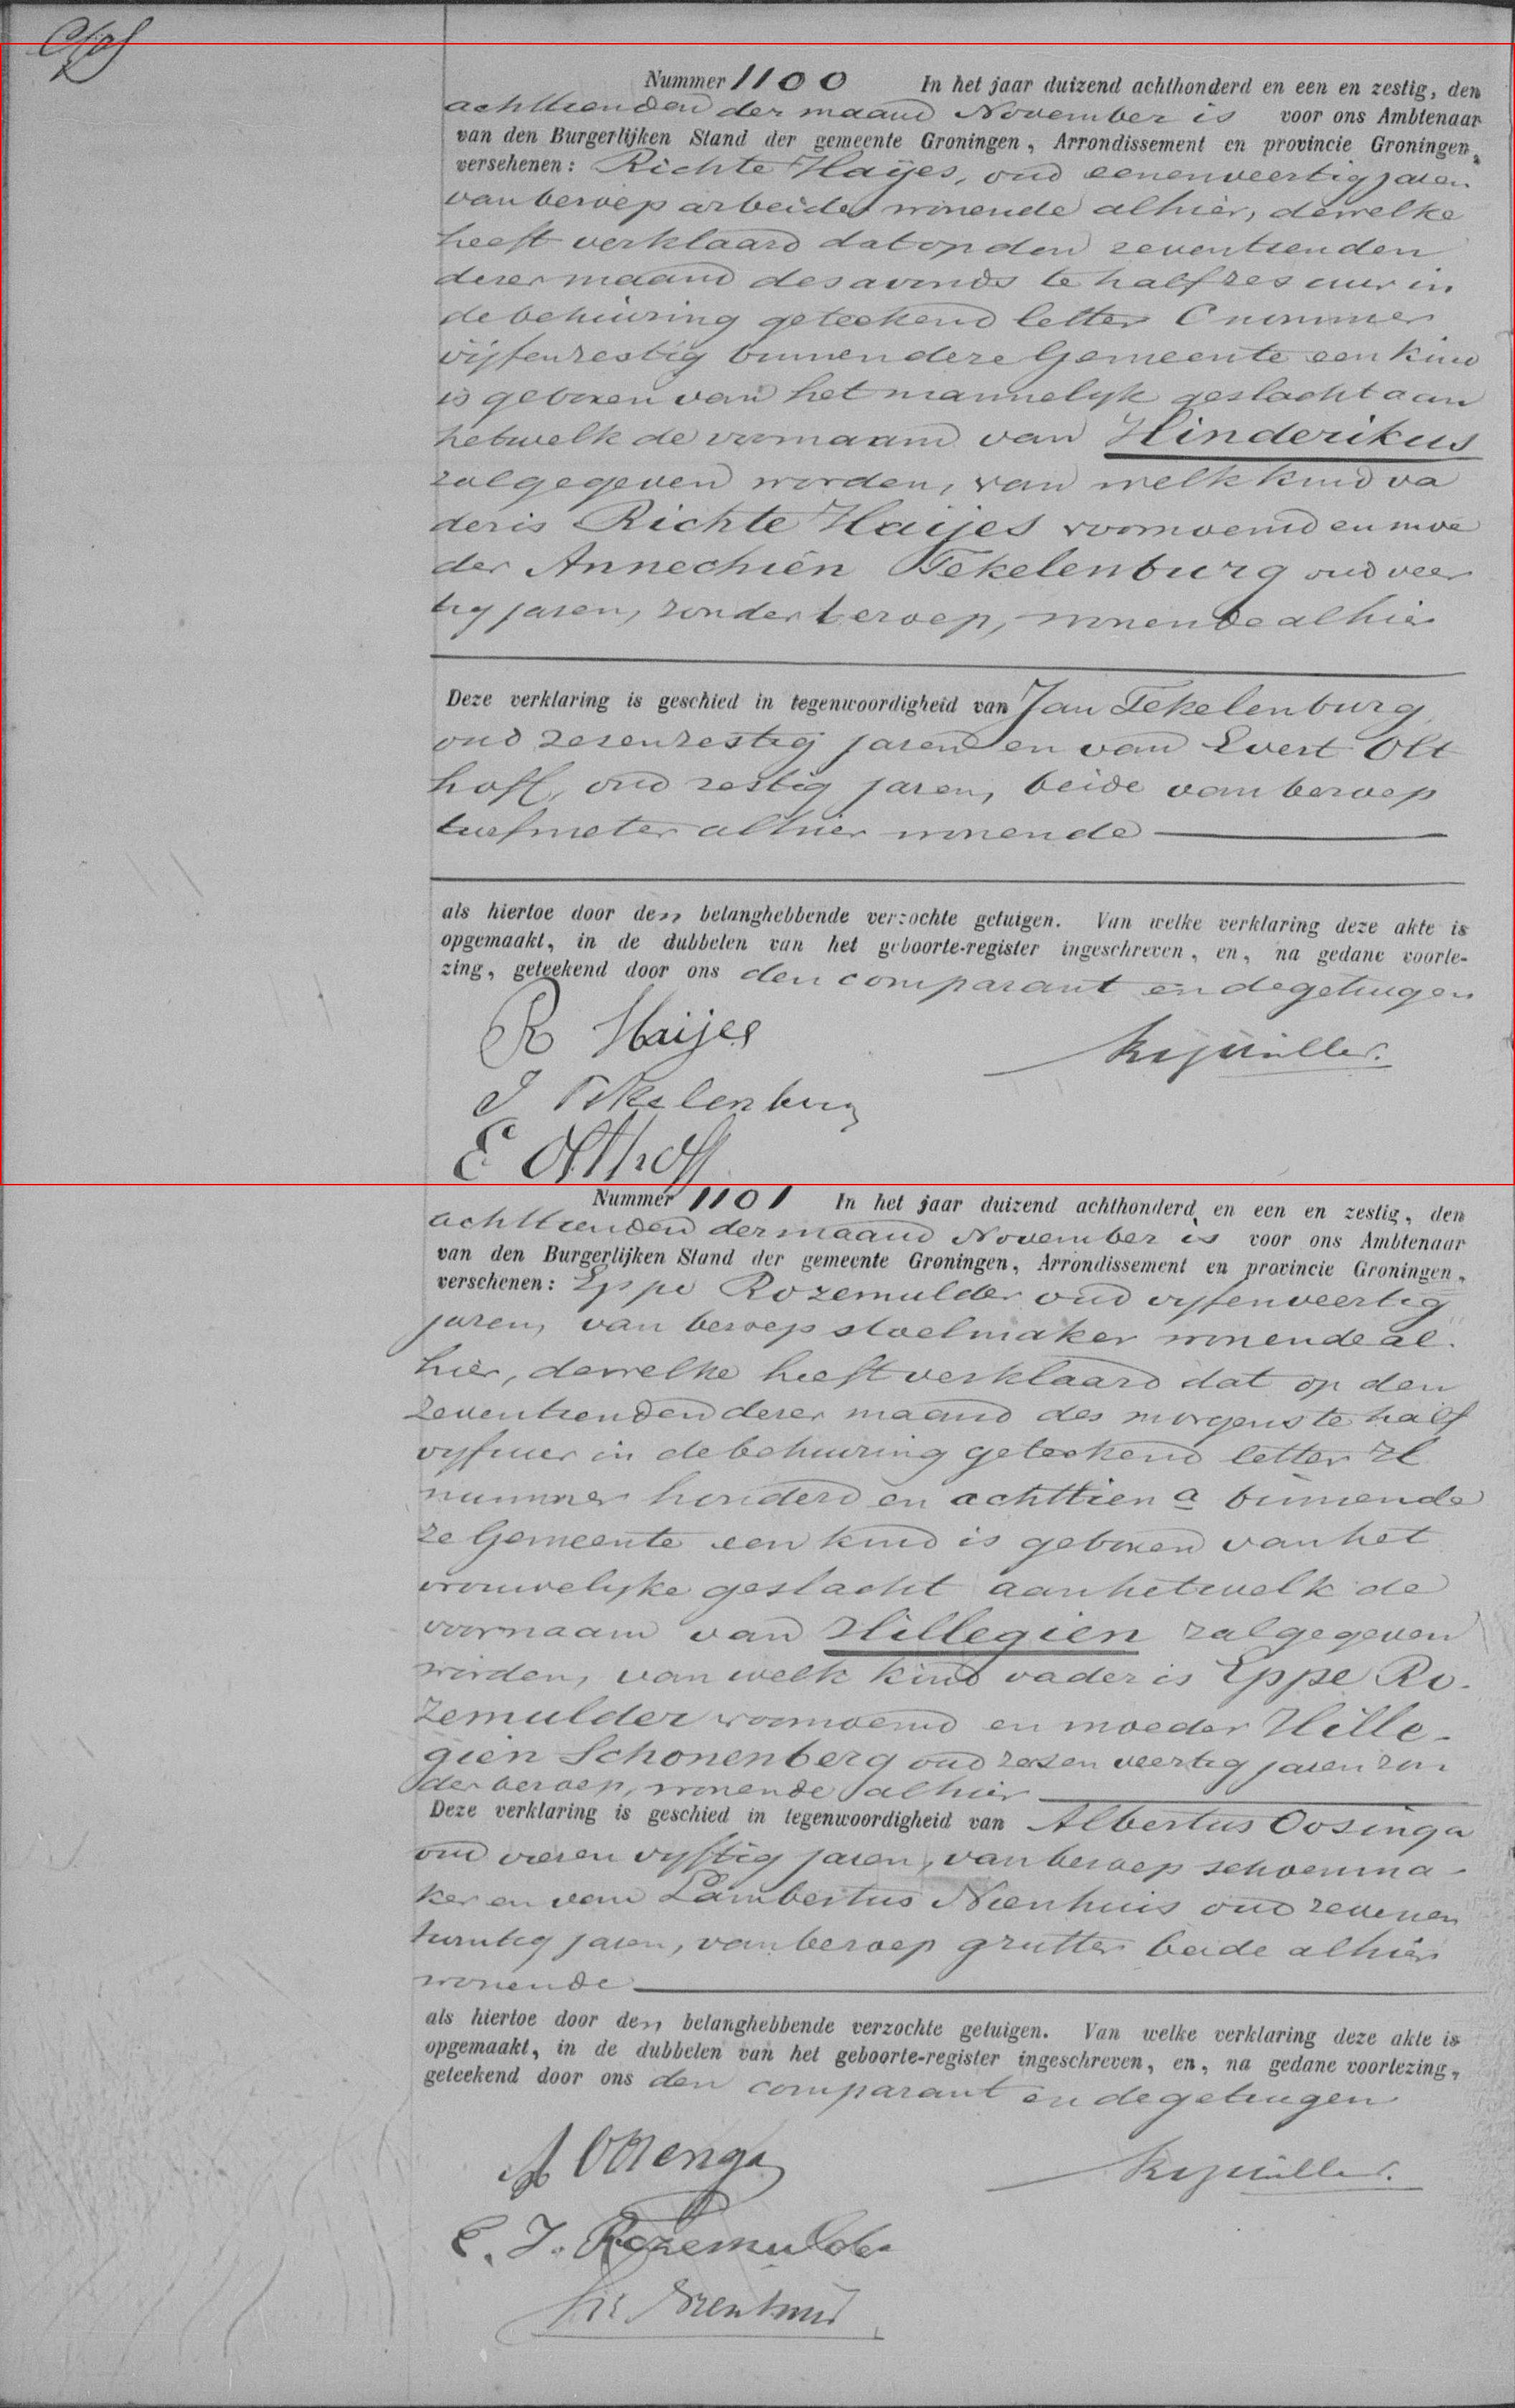 Nummer 1100 In het jaar duizend achthonderd en een en zestig, den
achttienden der maand November is voor ons Ambtenaar
van den Burgerlijken Stand der gemeente Groningen, Arrondissement en provincie Groningen,
versehenen: Richte Haijes, oud eenenveertig jaren
van beroep arbeider wonende alhier, dewelke
heeft verklaard dat op den zeventienden
dezer maand des avonds te half zes uur in
de behuizing geteekend letter C nummer
vijfenzestig binnen deze Gemeente een kind
is geboren van het mannelyk geslacht aan
hetwelk de voornaam van Hinderikus
zal gegeven worden, van welk kind va
der is Richte Haijes voornoemd en moe
der Annechien Tekelenburg oud veer
tig jaren, zonder beroep, wonende alhier
Deze verklaring is geschied in tegenwoordigheid van Jan Tekelenburg,
oud zesenzestig jaren en van Evert Olt
hoff, oud zestig jaren, beide van beroep
turfmeter alhier wonende
als hiertoe door den belanghebbende verzochte getuigen. Van welke verklaring deze akte is
opgemaakt, in de dubbelen van het geboorte-register ingeschreven, en, na gedane voorle-
zing, geteekend door ons den comparant en de getuigen
R Haijes
J Tekelenburg
E Olthoff
Nummer 1101 In het jaar duizend achthonderd en een en zestig, den
achttienden der maand November is voor ons Ambtenaar
van den Burgerlijken Stand der gemeente Groningen, Arrondissement en provincie Groningen,
verschenen: Eppe Rozemulder oud vyfenveertig
jaren, van beroep stoelmaker wonende al-
hier, dewelke heeft verklaard dat op den
zeventienden dezer maand des morgens te half
vyf uur in de behuizing geteekend letter
nummer honderd en achttien a binnen de
ze Gemeente een kind is geboren van het
vrouwelyke geslacht aan hetwelk de
voornaam van Hillegien zal gegeven
worden, van welk kind vader is Eppe Ro-
zemulder voornoemd en moeder Hille-
gien Schonenberg oud zesen veertig jaren zon
der beroep, wonende alhier
Deze verklaring is geschied in tegenwoordigheid van Albertus Oosinga
oud vieren vyftig jaren, van beroep schoenma-
ker en van Lambertus Nienhuis oud zevenen
twintig jaren, van beroep grutter beide alhier
wonende
als hiertoe door den belanghebbende verzochte getuigen. Van welke verklaring deze akte is
opgemaakt, in de dubbelen van het geboorte-register ingeschreven, en, na gedane voorlezing,
geteekend door ons den comparant en de getuigen
E. J. Rozemulder
Nienhuis